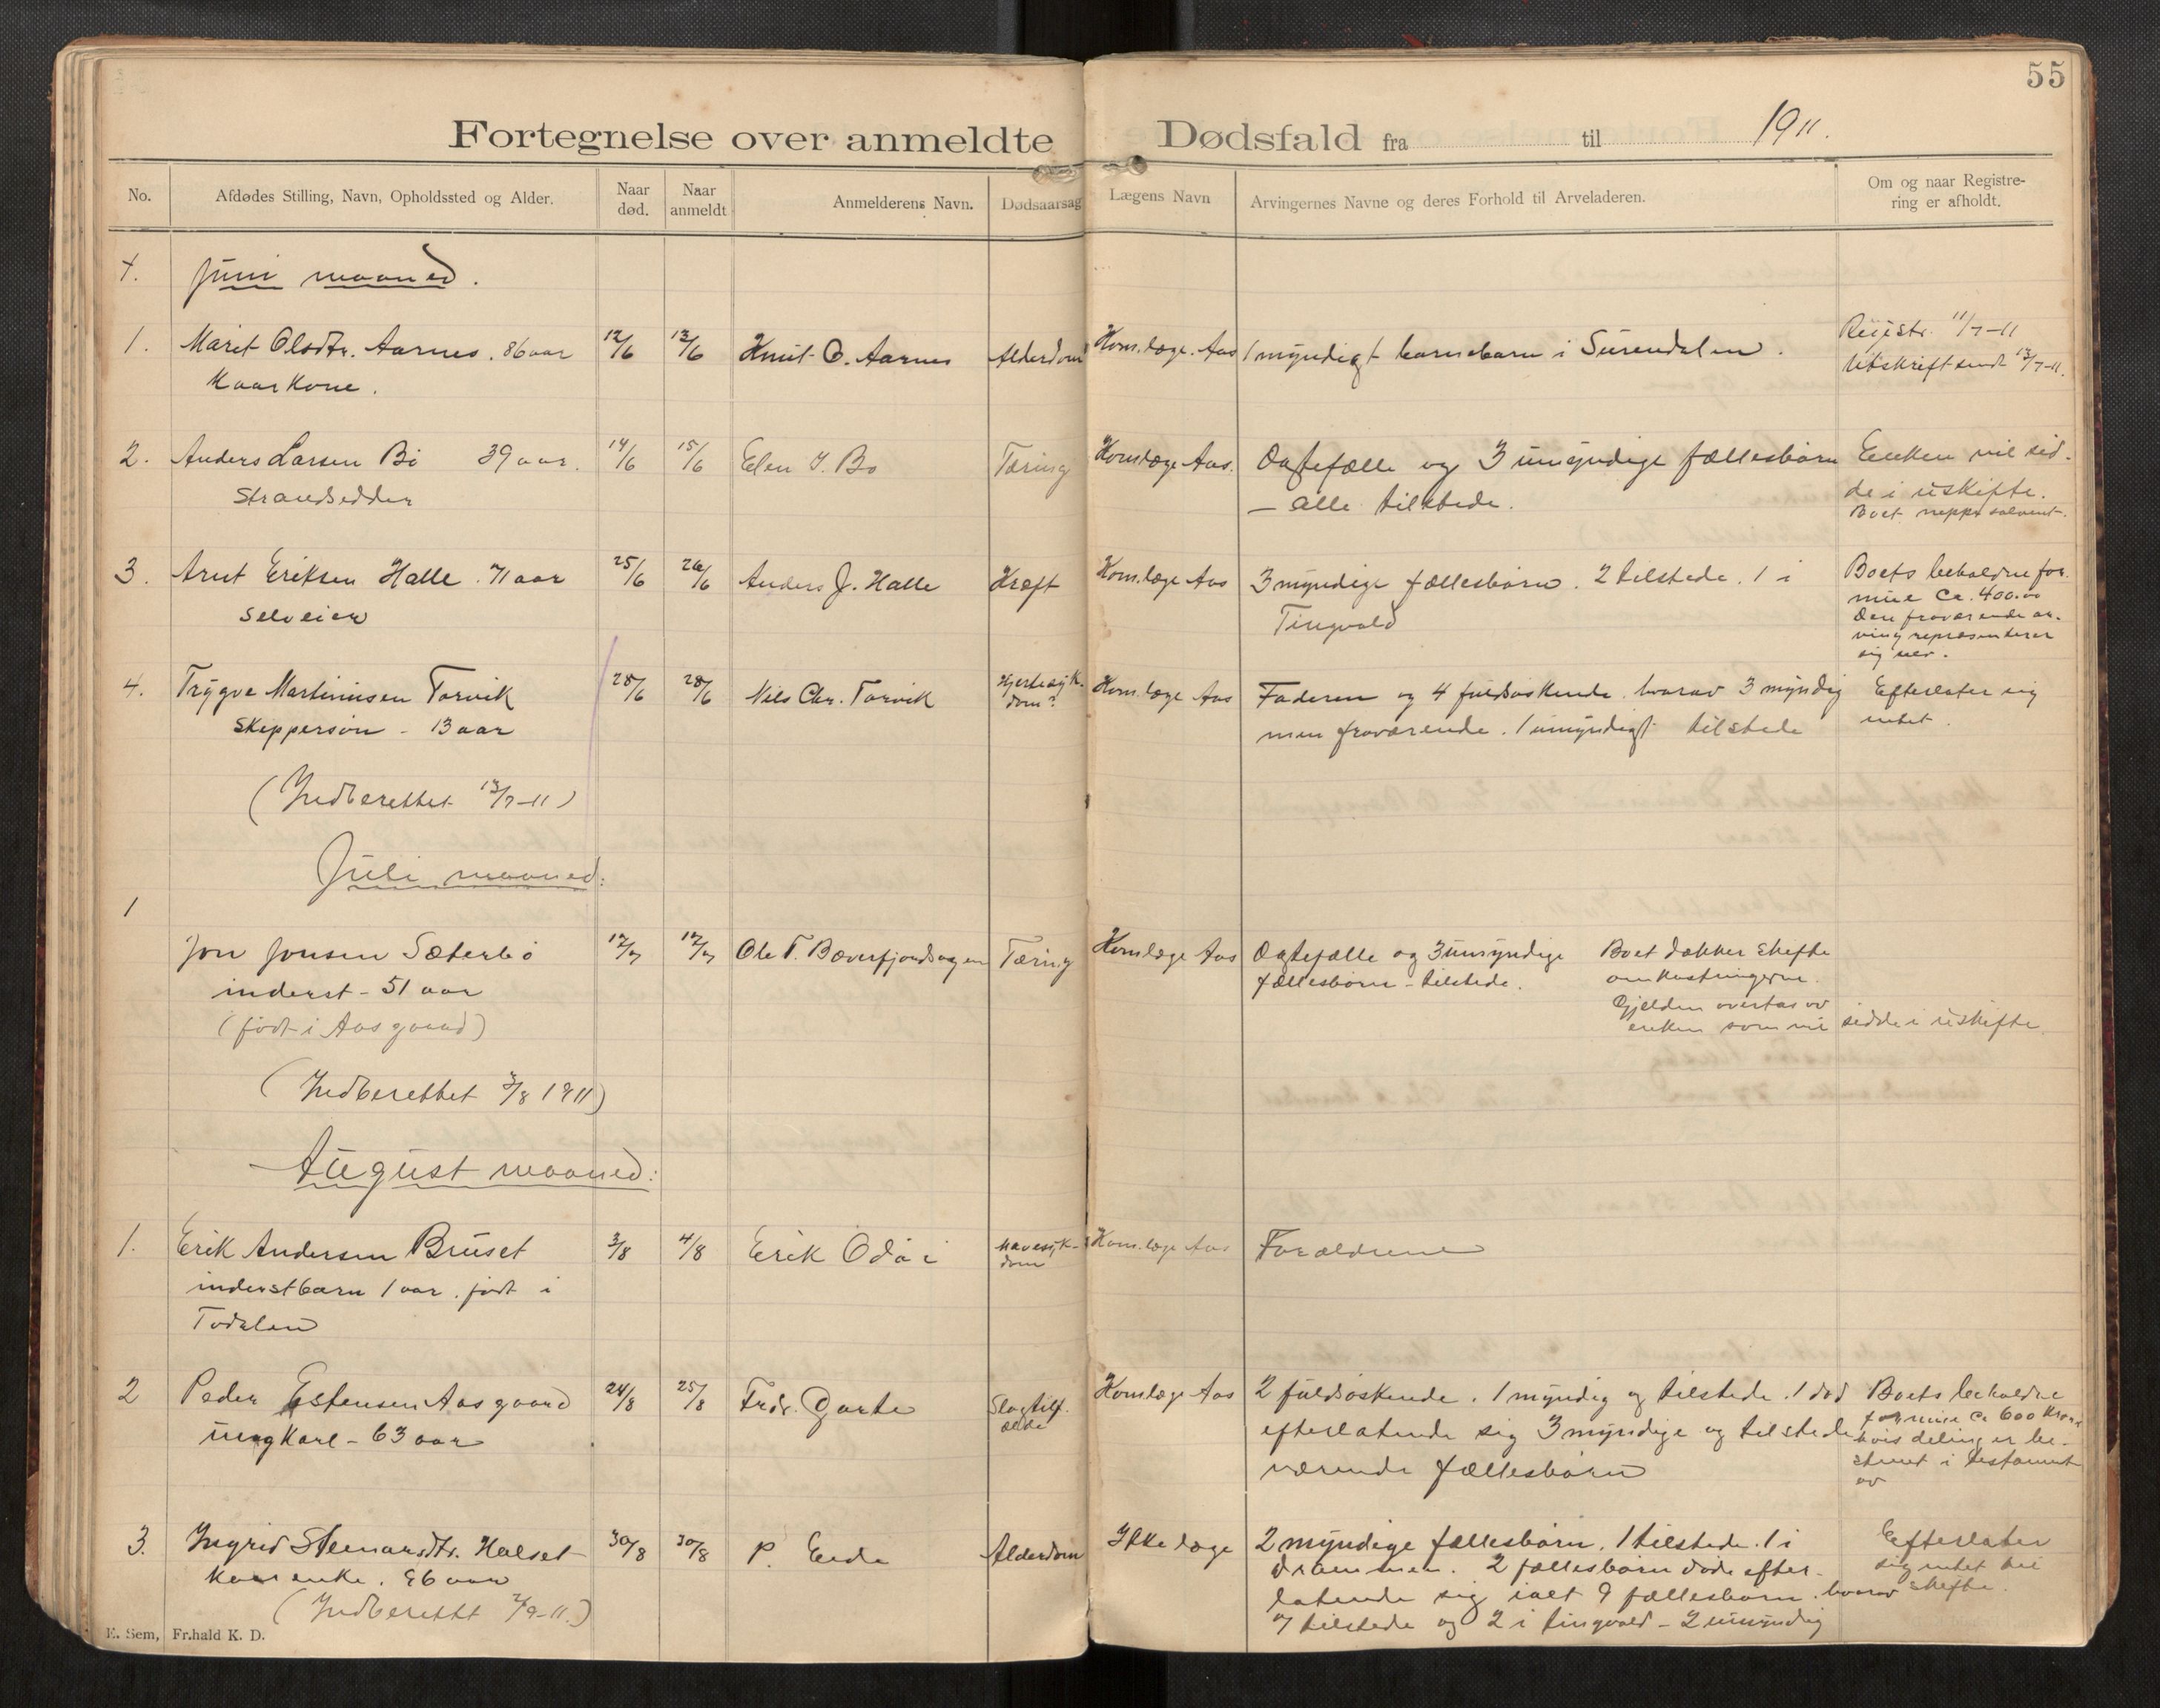 55
Fortegnelse over anmeldte Dødsfald fra til 1911.
No. Afdødes Stilling, Navn, Opholdssted og Alder. Naar død. Naar anmeldt Anmelderens Navn. Dødsaarsag Lægens Navn Arvingernes Navne og deres Forhold til Arveladeren. Om og naar Registrering er afholdt.
Juni maaned.
1. Marit Olsdtr. Aarnes. 86 aar 12/6 13/6 Knut O. Aarnes Alderdom Kom.læge Aas 1 myndigt barnebarn i Surendalen. Regstr. 11/7-11
Kaarkone. Utskrift sendt 13/7-11.
2. Anders Larsen Bø 39 aar. 14/6 15/6 Elen J. Bø Tæring Komlæge Aas. Ægtefælle og 3 umyndige fællesbørn Enken vil sid-
Strandsidder — alle tilstede. de i uskifte.
Boet neppe solvent.
3. Arnt Eriksen Halle. 71 aar 25/6 26/6 Anders J. Halle Kræft Kom.læge Aas 3 myndige fællesbørn. 2 tilstede. 1 i Boets beholdne for-
selveier Tingvold mue ca. 400.00
Den fraværende ar-
ving repræsenterer
sig selv.
4. Trygve Martinusen Torvik 28/6 28/6 Nils Chr. Torvik Hjertesyk-dom? Kom.læge Aas Faderen og 4 fuldsøskende hvorav 3 myndig Efterlater sig
Skippersøn - 13 aar men fraværende. 1 umyndigt tilstede intet.
(Indberettet 13/7-11)
Juli maaned:
1
Jon Jonsen Sæterbø 12/7 12/7 Ole T. Bøverfjordsøyen Tæring Komlæge Aas Ægtefælle og 3 umyndige Boet dækker skifte
inderst - 51 aar fællesbørn - tilstede. omkostningerne.
(født i Aasgaard) Gjelden overtas av
enken som vil sidde i uskifte.
(Indberettet 3/8 1911)
August maaned:
1. Erik Andersen Bruset 3/8 4/8 Erik Odøi Mavesyk-dom Kom.læge Aas Forældrene
inderstbarn 1 aar. født i
Todalen
2 Peder Estensen Aasgaard 24/8 25/8 Frdr. Garte Slagtilf-ælde Komlæge Aas 2 fuldsøskende. 1 myndig og tilstede. 1 død Boets beholdne
ungkarl - 63 aar efterlatende sig 3 myndige og tilstede formue ca 600 kroner
værende fællesbørn hvis deling er be-
stemt i testament
av
3. Ingrid Steinarsdtr. Halset 30/8 30/8 P. Eide Alderdom Ikke læge 2 myndige fællesbørn. 1 tilstede. 1 i Efterlater
kaarenke. 86 aar Drammen. 2 fællesbørn døde efter- sig intet til
(Indberettet /9-11.) latende sig ialt 9 fællesbørn. hvorav skifte.
7 tilstede og 2 i tingvold - 2 umyndig
E. Sem, Fr.hald K. D.